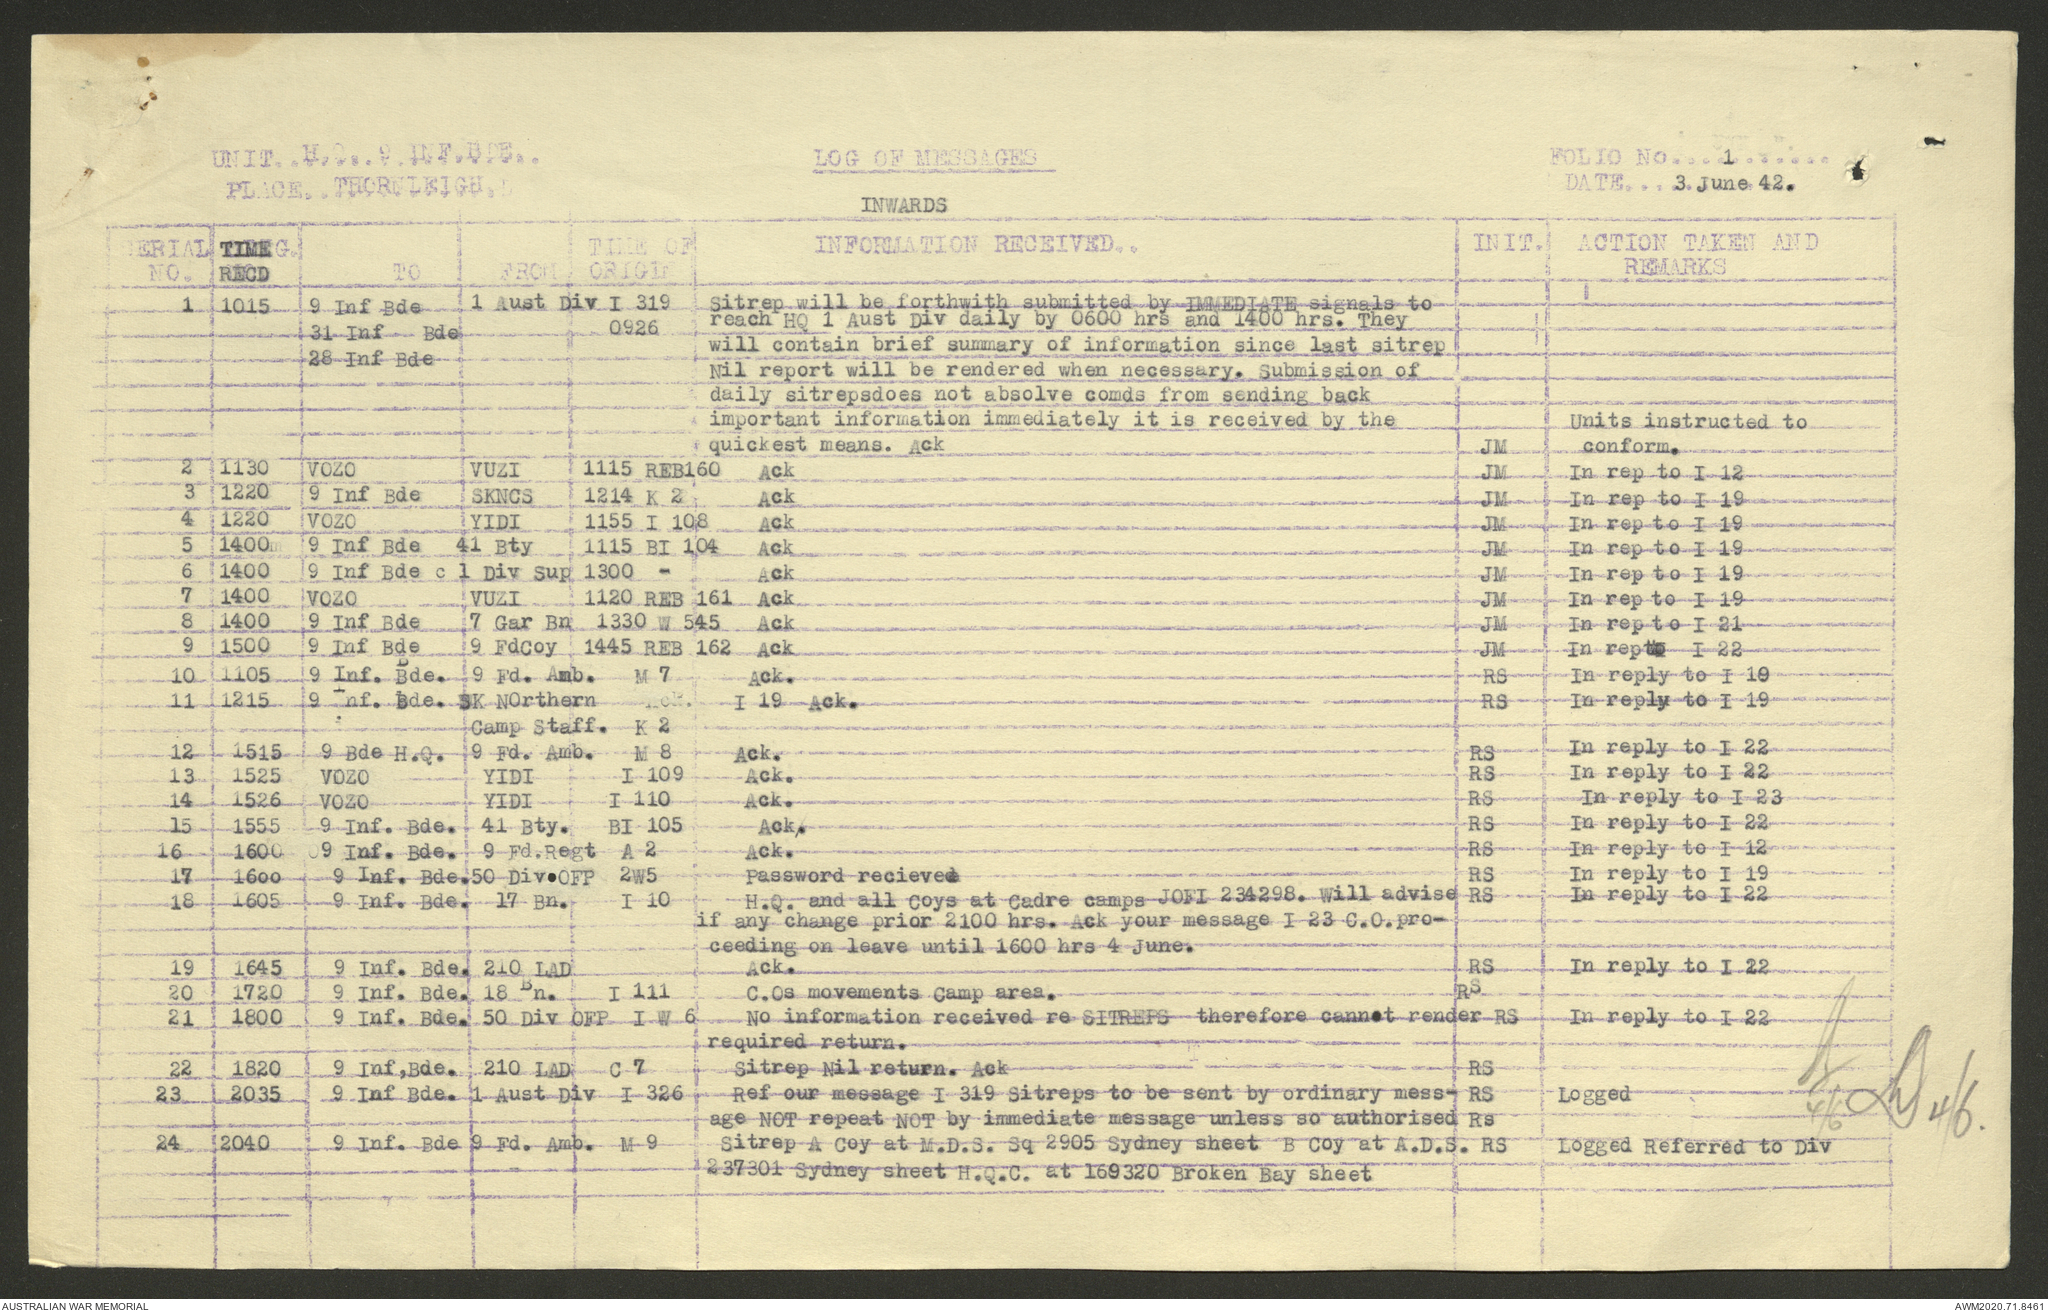 UNIT..H.Q..9.INF.BDE.. LOG OF MESSAGES FOLIO No...1......
PLACE..THORNLEIGH. DATE...3.June.42.
INWARDS
SERIAL TIME TIME OF INFORMATION RECEIVED.. INIT. ACTION TAKEN AND
NO. RECD TO FROM ORIGIN REMARKS
1 1015 9 Inf Bde 1 Aust Div I 319 Sitrep will be forthwith submitted by IMMEDIATE signals to
31 Inf Bde 0926 reach HQ 1 Aust Div daily by 0600 hrs and 1400 hrs. They
28 Inf Bde will contain brief summary of information since last sitrep
Nil report will be rendered when necessary. Submission of
daily sitrepsdoes not absolve comds from sending back
important information immediately it is received by the Units instructed to
quickest means. Ack JM conform.
2 1130 VOZO VUZI 1115 REB160 Ack JM In rep to I 12
3 1220 9 Inf Bde SKNCS 1214 K 2 Ack JM In rep to I 19
4 1220 VOZO YIDI 1155 I 108 Ack JM In rep to I 19
5 1400 9 Inf Bde 41 Bty 1115 BI 104 Ack JM In rep to I 19
6 1400 9 Inf Bde c 1 Div Sup 1300 - Ack JM In rep to I 19
7 1400 VOZO VUZI 1120 REB 161 Ack JM In rep to I 19
8 1400 9 Inf Bde 7 Gar Bn 1330 W 545 Ack JM In rep to I 21
9 1500 9 Inf Bde 9 FdCoy 1445 REB 162 Ack JM In repto I 22
10 1105 9 Inf. Bde. 9 Fd. Amb. M 7 Ack. RS In reply to I 19
11 1215 9 Inf. Bde. SK NOrthern I 19 Ack. RS In reply to I 19
Camp Staff. K 2
12 1515 9 Bde H.Q. 9 Fd. Amb. M 8 Ack. RS In reply to I 22
13 1525 VOZO YIDI I 109 Ack. RS In reply to I 22
14 1526 VOZO YIDI I 110 Ack. RS In reply to I 23
15 1555 9 Inf. Bde. 41 Bty. BI 105 Ack. RS In reply to I 22
16 1600 09 Inf. Bde. 9 Fd.Regt A 2 Ack. RS In reply to I 12
17 1600 9 Inf. Bde.50 Div.OFP 2W5 Password recieved RS In reply to I 19
18 1605 9 Inf. Bde. 17 Bn. I 10 H.Q. and all Coys at Cadre camps JOFI 234298. Will advise RS In reply to I 22
if any change prior 2100 hrs. Ack your message I 23 C.O.pro-
ceeding on leave until 1600 hrs 4 June.
19 1645 9 Inf. Bde. 210 LAD Ack. RS In reply to I 22
20 1720 9 Inf. Bde. 18 Bn. I 111 C.Os movements Camp area. RS
21 1800 9 Inf. Bde. 50 Div OFP I W 6 No information received re SITREPS therefore cannot render RS In reply to I 22
required return.
22 1820 9 Inf,Bde. 210 LAD C 7 Sitrep Nil return. Ack RS
23 2035 9 Inf Bde. 1 Aust Div I 326 Ref our message I 319 Sitreps to be sent by ordinary mess- RS Logged
age NOT repeat NOT by immediate message unless so authorised Rs
4/6 4/6.
24 2040 9 Inf. Bde 9 Fd. Amb. M 9 Sitrep A Coy at M.D.S. Sq 2905 Sydney sheet B Coy at A.D.S. RS Logged Referred to Div
237301 Sydney sheet H.Q.C. at 169320 Broken Bay sheet
AUSTRALIAN WAR MEMORIAL AWM2020.71.8461